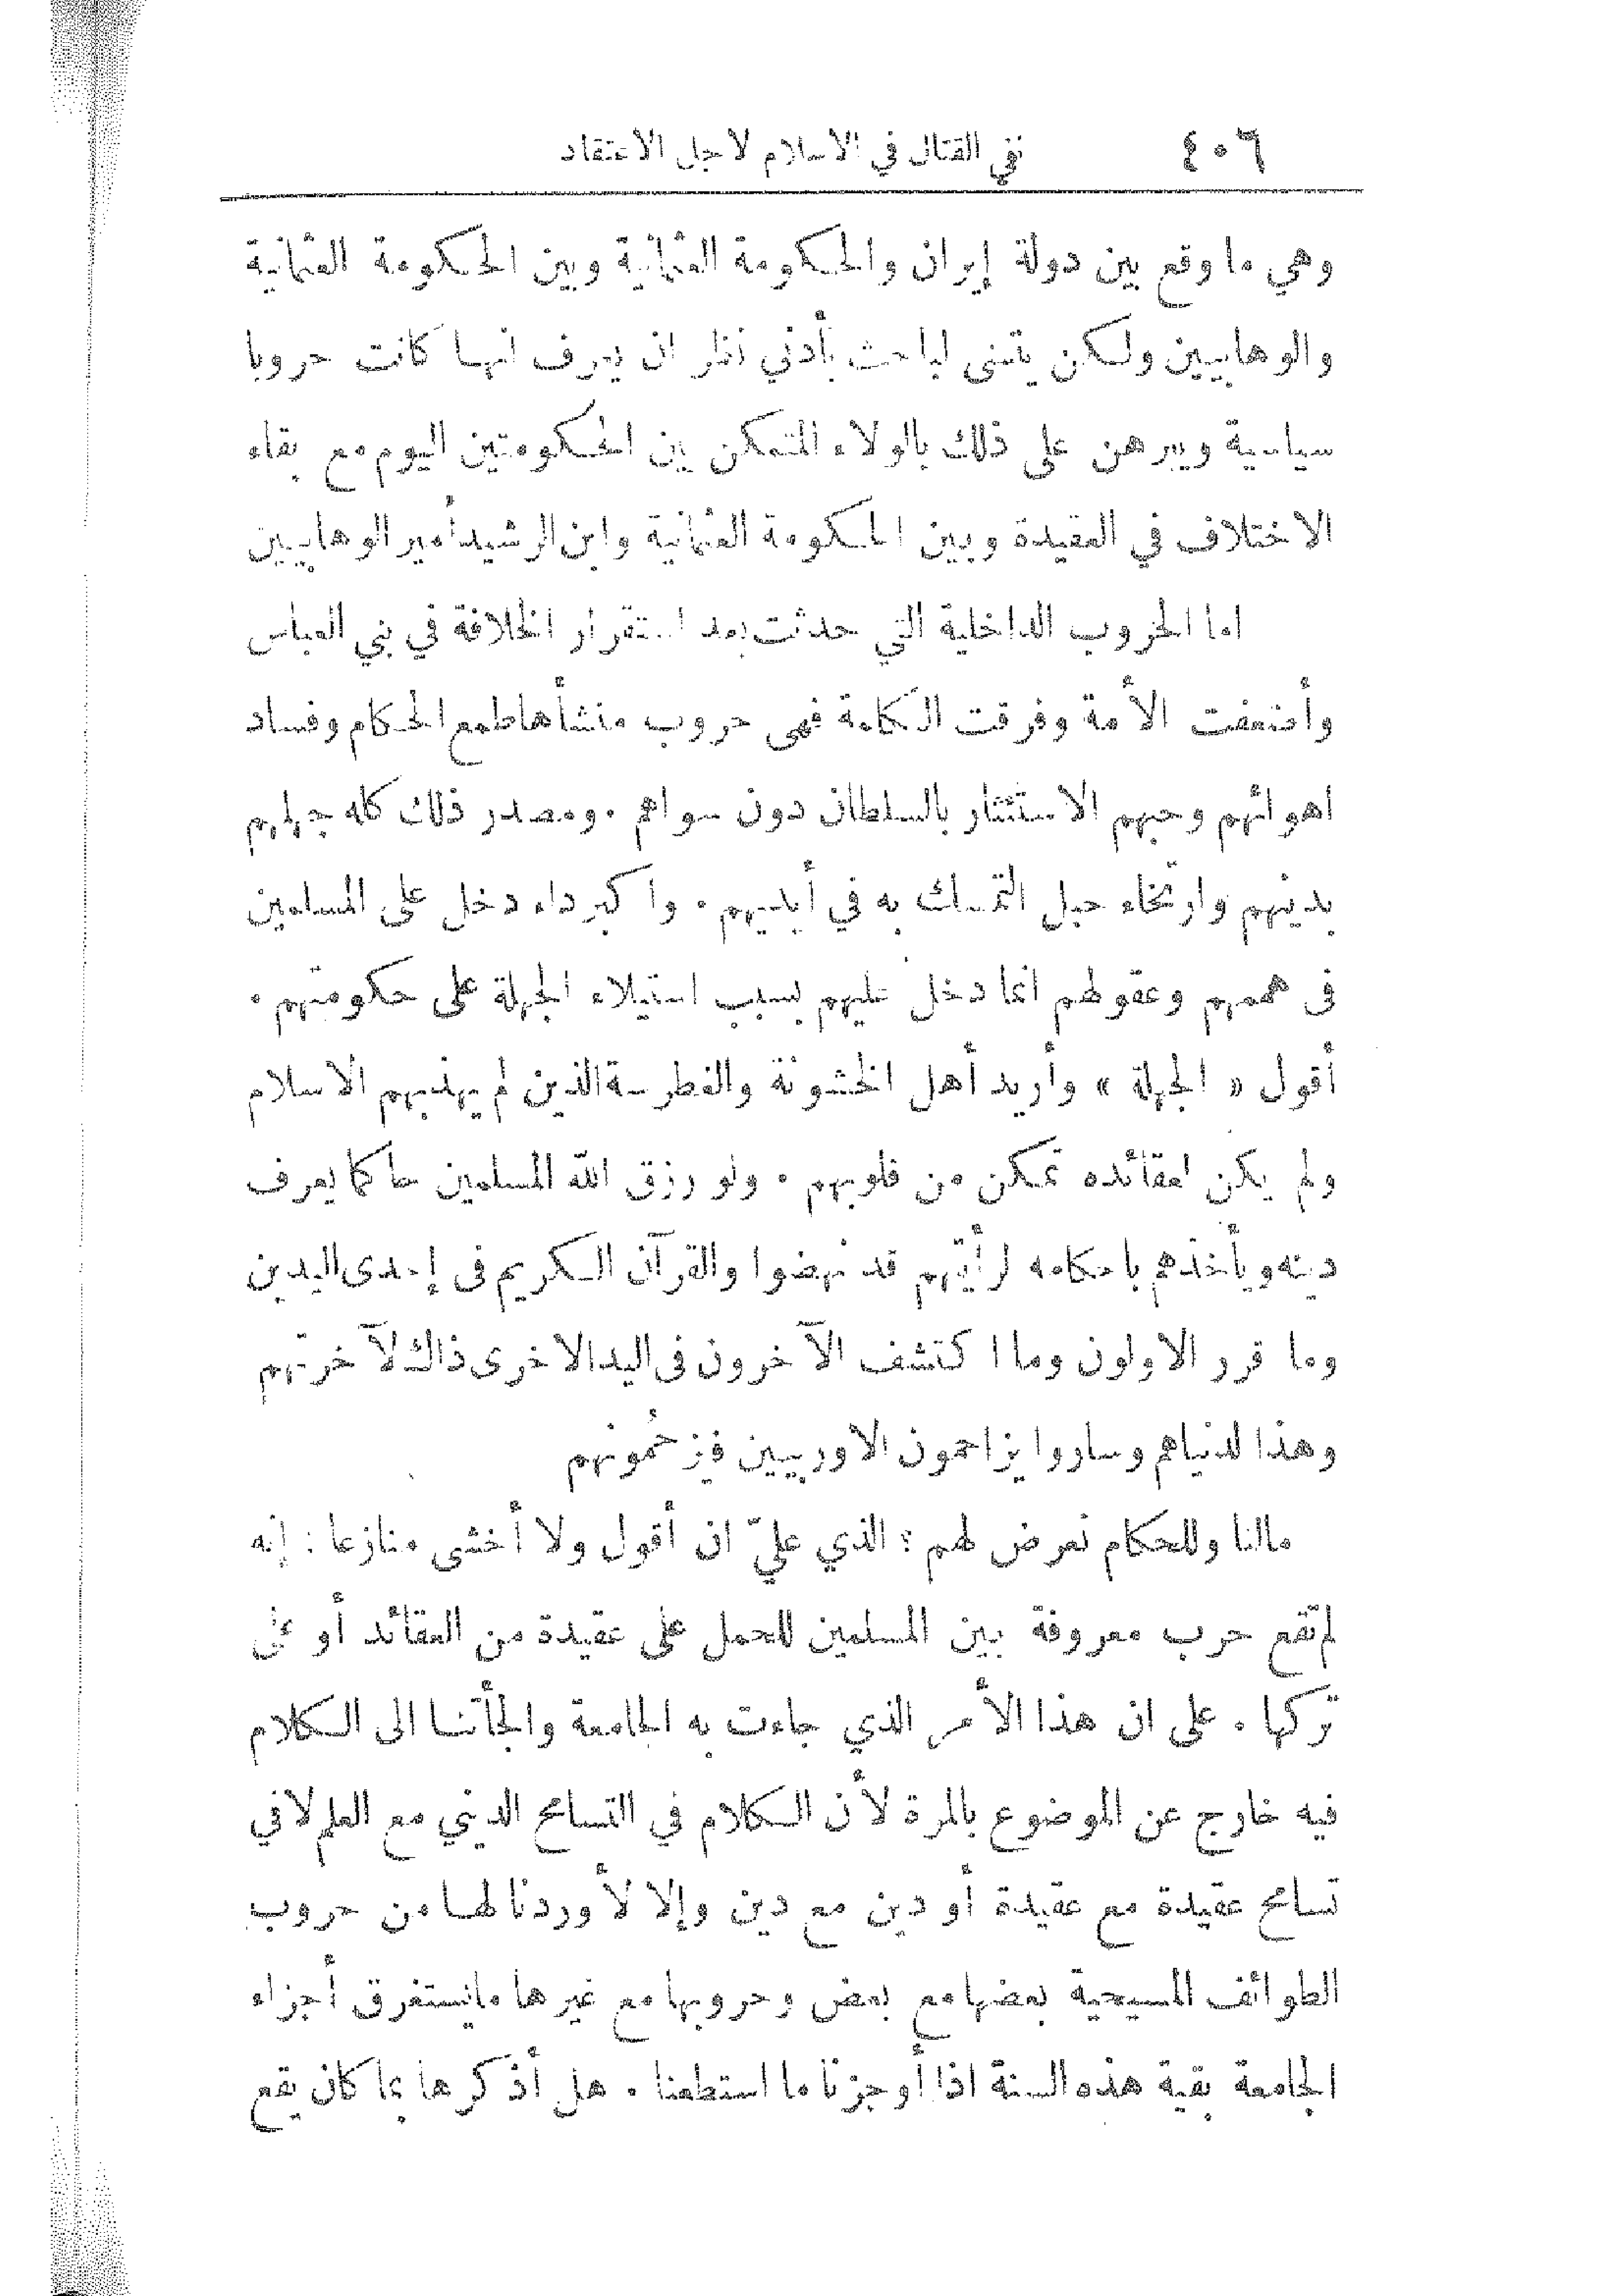 ٤٠٦ نفي القتال في الاسلام لاجل الاعتقاد
وهي ما وقع بين دولة إيران والحكومة العثمانية وبين الحكومة العثمانية
والوهابيين ولكن يتسنى لباحث بأدنى نظر ان يعرف انها كانت حروبا
سياسية ويبرهن على ذلك بالولاء المتمكن بين الحكومتين اليوم مع بقاء
الاختلاف في العقيدة وبين الحكومة العثمانية وابن الرشيد أمير الوهابيين
اما الحروب الداخلية التي حدثت بعد استقرار الخلافة في بني العباس
وأضعفت الأمة وفرقت الكلمة فهي حروب منشأها طمع الحكام وفساد
اهوائهم وحبهم الاستئثار بالسلطان دون سواهم . ومصدر ذلك كله جهلهم
بدينهم وارتخاء حبل التمسك به في أيديهم . واكبر داء دخل على المسلمين
في هممهم وعقولهم انما دخل عليهم بسبب استيلاء الجهلة على حكومتهم .
أقول « الجهلة » وأريد أهل الخشونة والغطرسة الذين لم يهذبهم الاسلام
ولم يكن لعقائده تمكن من قلوبهم . ولو رزق الله المسلمين حاكما يعرف
دينه ويأخذهم باحكامه لرأيتهم قد نهضوا والقرآن الكريم في إحدى اليدين
وما قرر الاولون وما اكتشف الآخرون في اليد الاخرى ذاك لآخرتهم
وهذا لدنياهم وساروا يزاحمون الاوربيين فيزحمُونهم
مالنا وللحكام نعرض لهم ؟ الذي عليّ ان أقول ولا أخشى منازعا : إنه
لم تقع حرب معروفة بين المسلمين للحمل على عقيدة من العقائد أو على
تركها . على ان هذا الأمر الذي جاءت به الجامعة والجأتنا الى الكلام
فيه خارج عن الموضوع بالمرة لأن الكلام في التسامح الديني مع العلم لا في
تسامح عقيدة مع عقيدة أو دين مع دين وإلا لأوردنا لها من حروب
الطوائف المسيحية بعضها مع بعض وحروبها مع غيرها ما يستغرق أجزاء
الجامعة بقية هذه السنة اذا أوجزنا ما استطعنا . هل أذكرها بما كان يقع